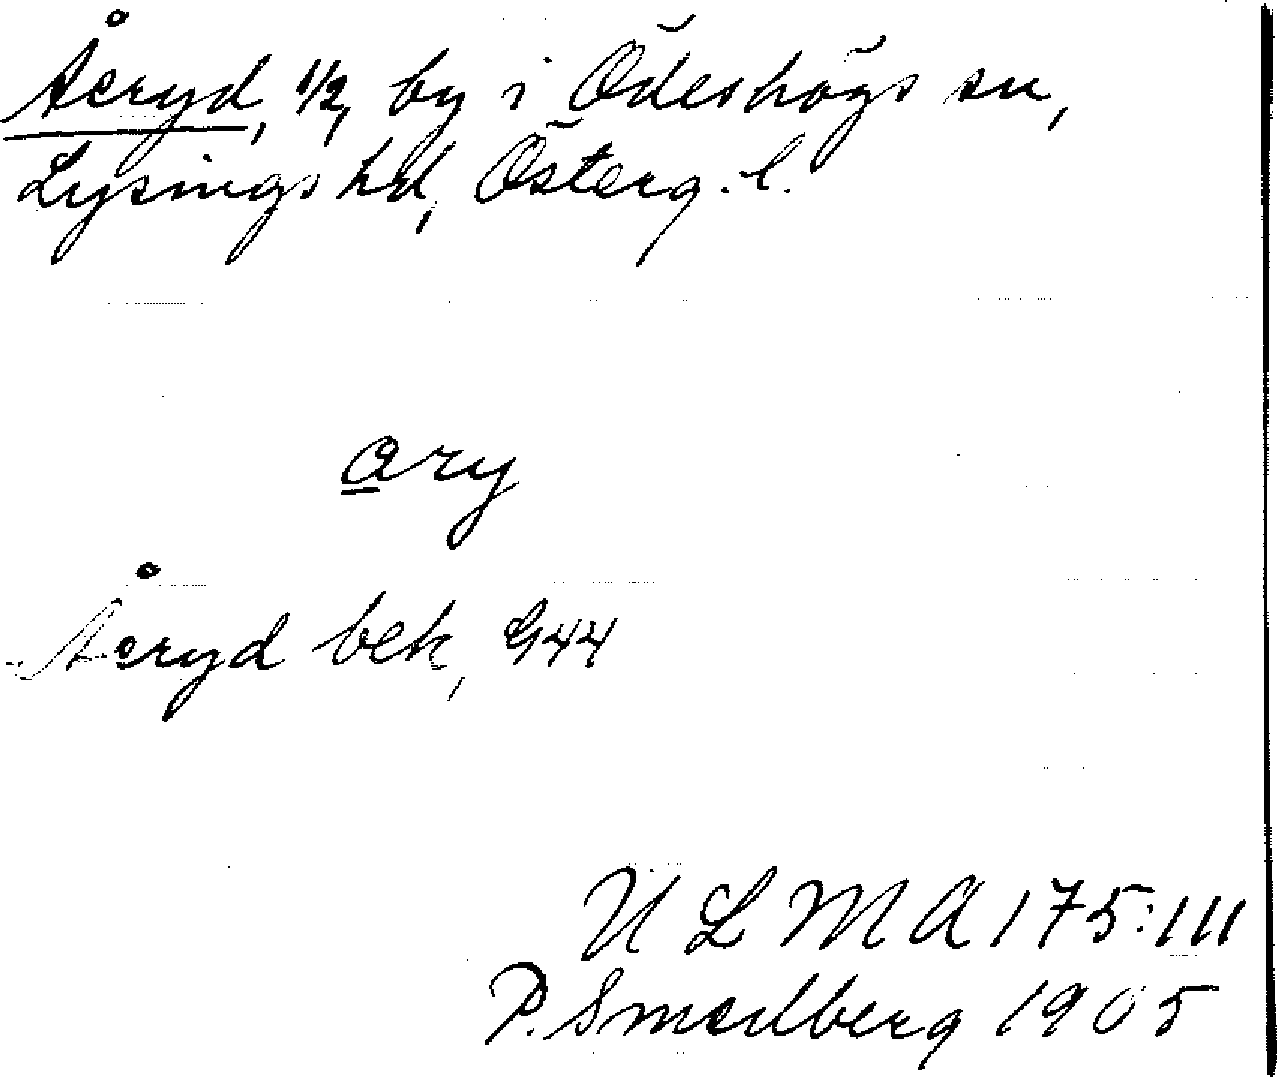 Åeryd, 1/2, by i Ödeshögs sn,
Lysings hd, Österg. l.
ary
Åeryd bek, G44
ULMA 175:111
P. Smedberg 1905